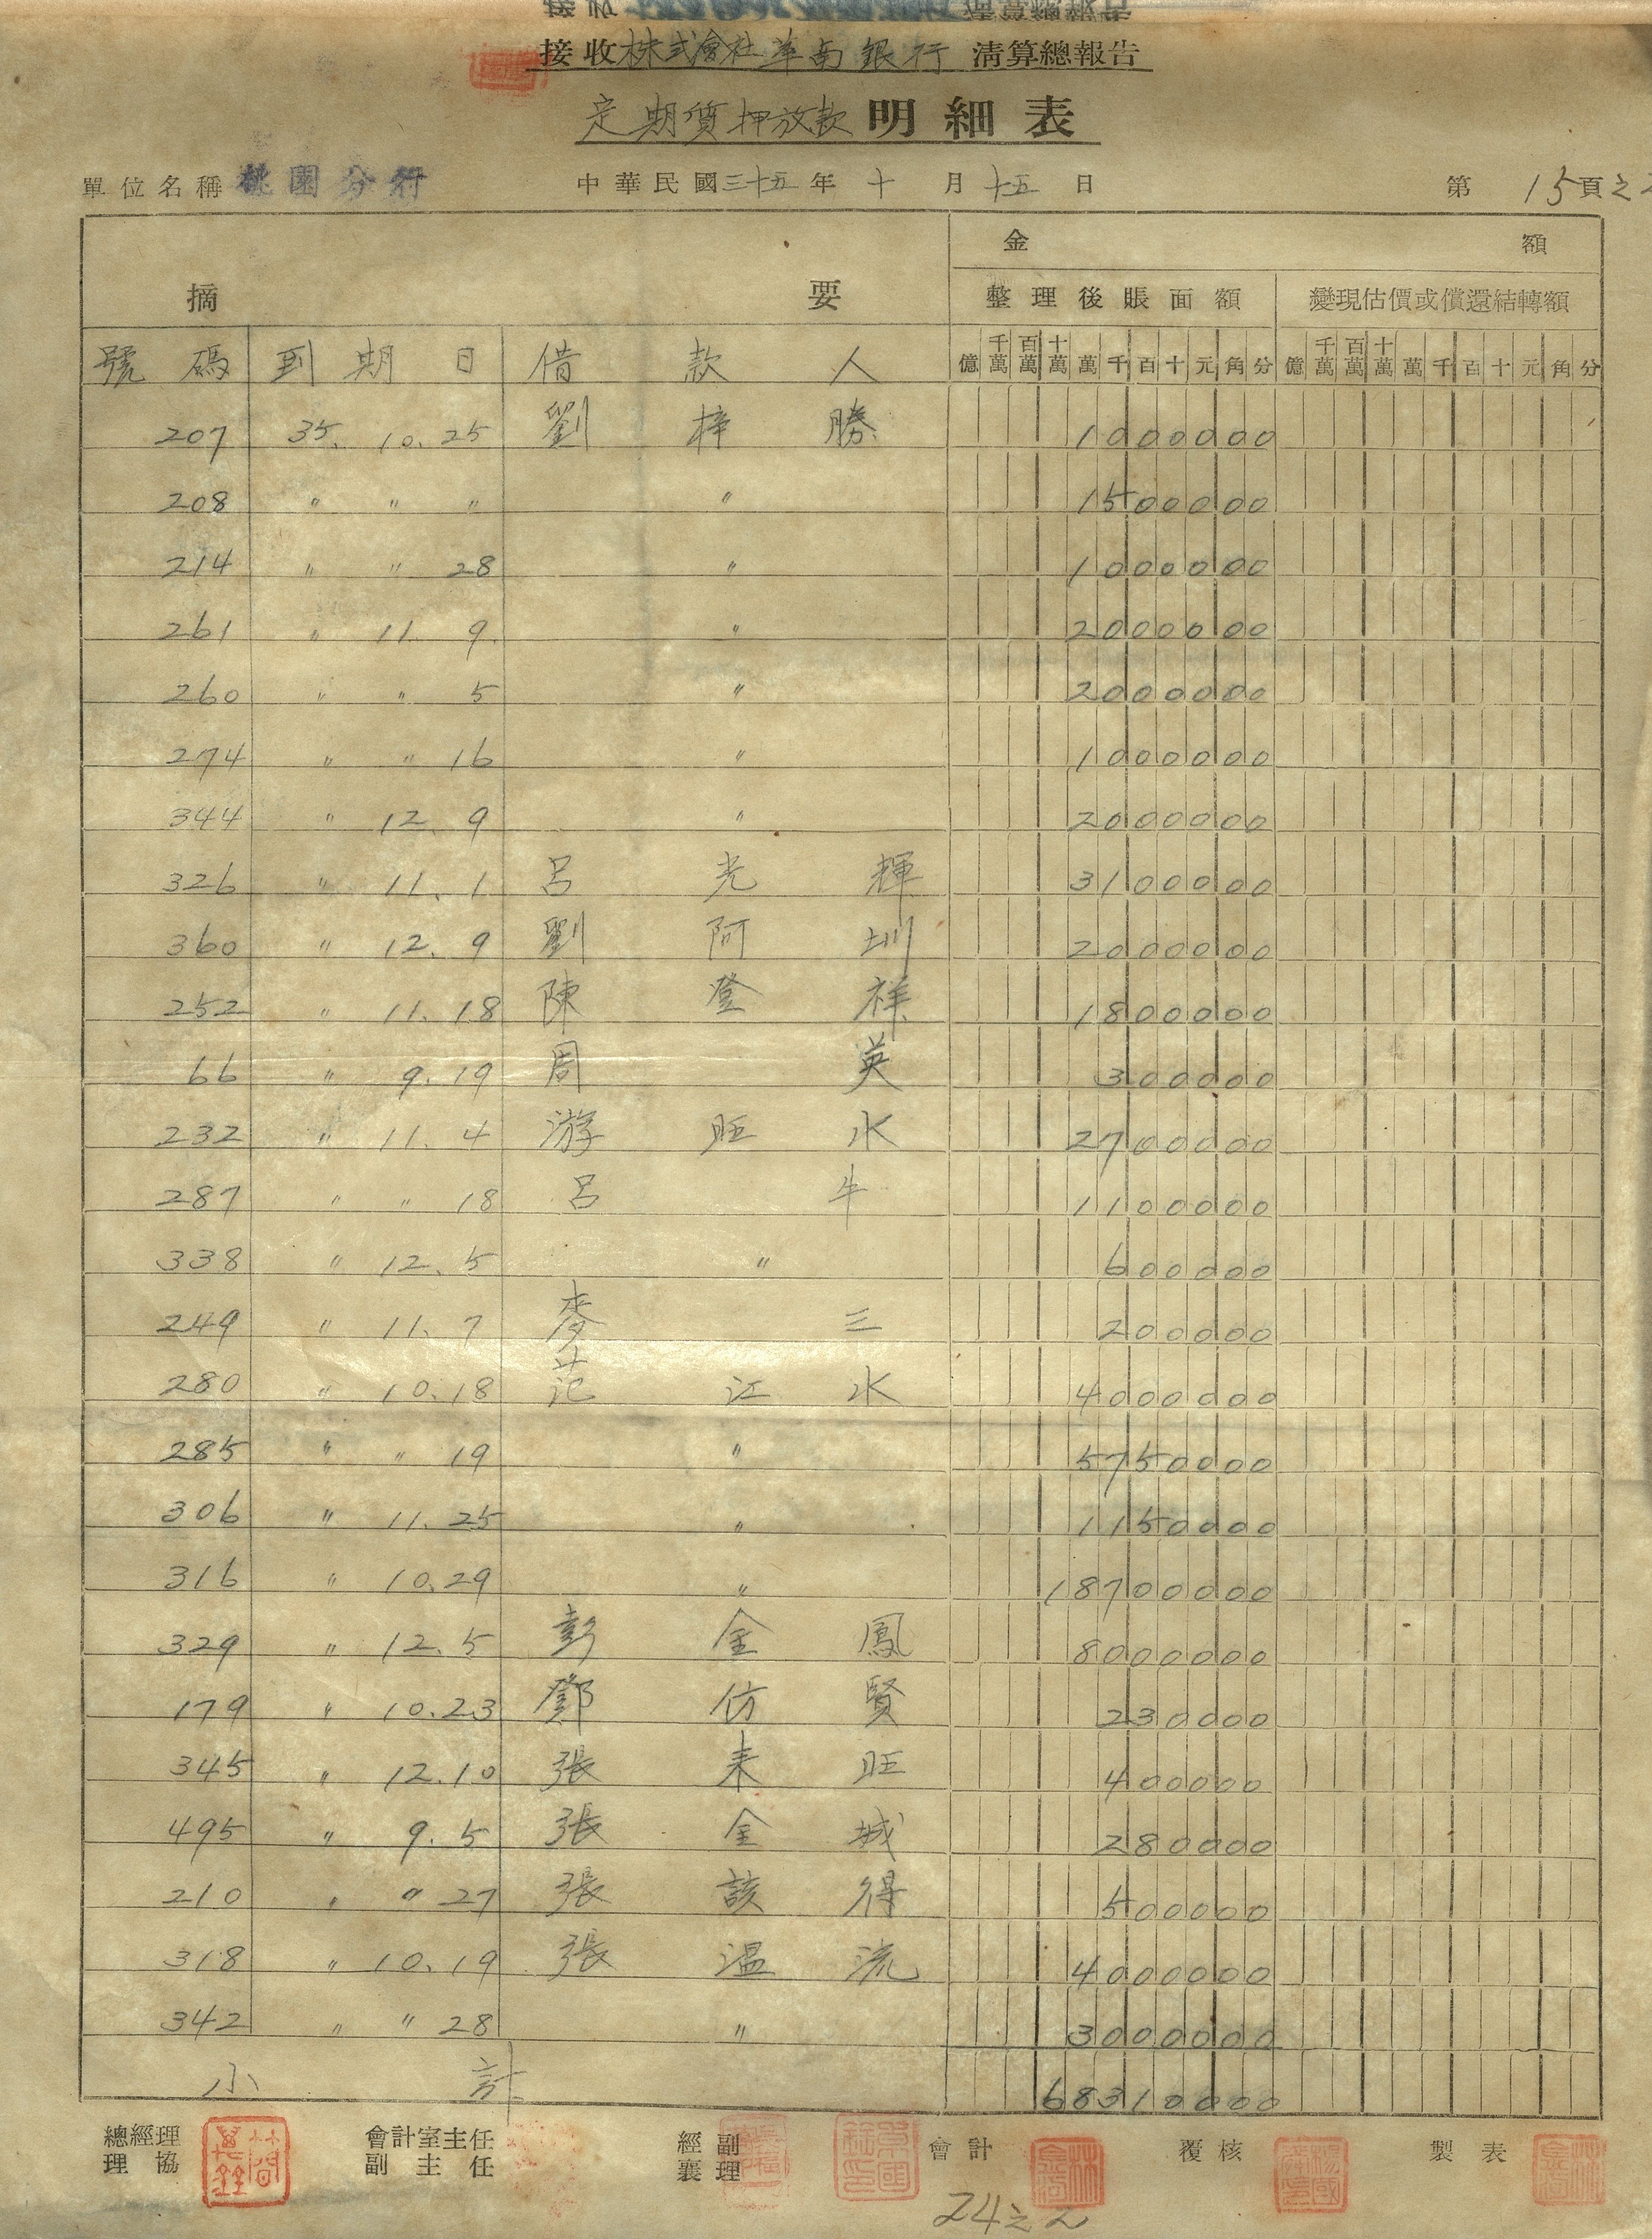 接收株式會社華南銀行 清算總報告
定期質押放款明細表
單位名稱 桃園分行 中華民國三十五年十月十五日 第15頁之2
金額
摘要 整理後賬面額 變現估價或償還結轉額
號碼 到期日 借款人 億 千萬 百萬 十萬 萬 千 百 十 元 角 分 億 千萬 百萬 十萬 萬 千 百 十 元 角 分
207 35. 10. 25 劉梓勝 1000000
208 〃 〃 〃 〃 1500000
214 〃 〃 28 〃 1000000
261 〃 11. 9. 〃 2000000
260 〃 〃 5 〃 2000000
274 〃 〃 16 〃 1000000
344 〃 12. 9 〃 2000000
326 〃 11. 1 呂光輝 3100000
360 〃 12. 9 劉阿圳 2000000
252 〃 11. 18 陳登祥 1800000
66 〃 9. 19 周英 300000
232 〃 11. 4 游旺水 2700000
287 〃 〃 18 呂牛 1100000
338 〃 12. 5 〃 600000
249 〃 11. 7 麥三 200000
280 〃 10. 18 范江水 4000000
285 〃 〃 19 〃 5750000
306 〃 11. 25 〃 1150000
316 〃 10. 29 〃 18700000
329 〃 12. 5 彭金鳳 8000000
179 〃 10. 23 鄧仿賢 230000
345 〃 12. 10 張來旺 400000
495 〃 9. 5 張金城 280000
210 〃 〃 27 張該得 500000
318 〃 10. 19 張溫流 4000000
342 〃 〃 28 〃 3000000
小計 68310000
總經理 會計室主任 經副 會計 覆核 製表
理協 副主任 襄理
24之2